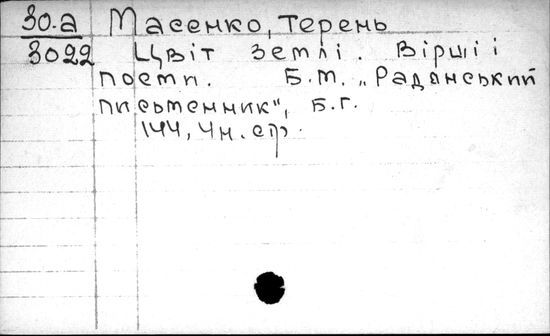 30.а Масенко, Терень
3022 Цвіт землі. Вірші і
поеми. Б.М. „Радянський
письменник", Б.Г.
144, 4 н. стр.